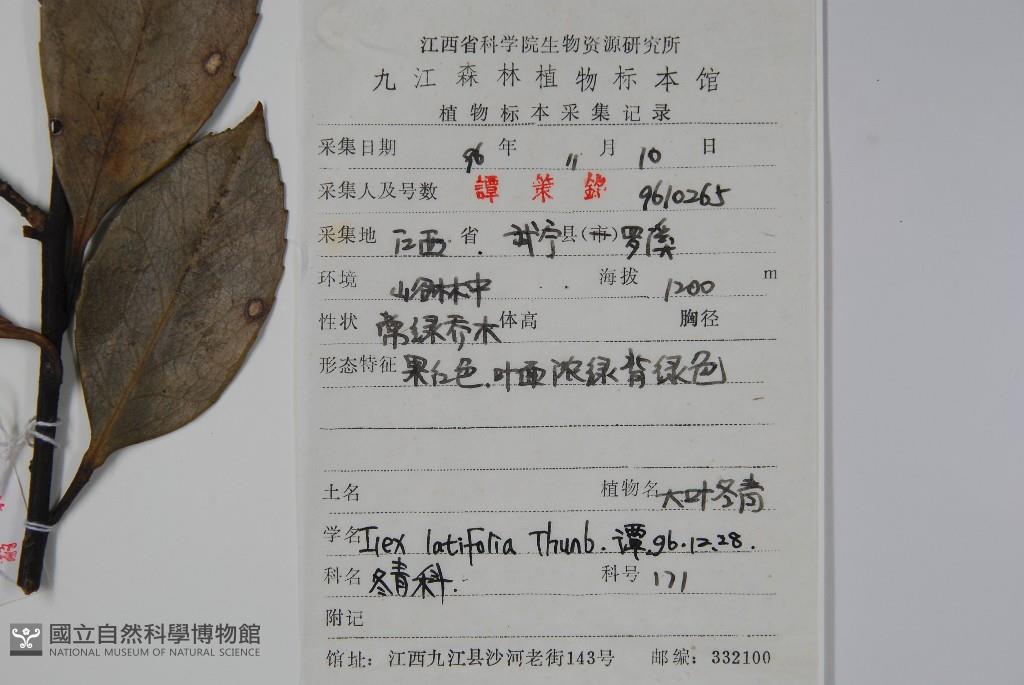 江西省科学院生物资源研究所
九江森林植物标本馆
植物标本采集记录
采集日期 96 年 11 月 10 日
采集人及号数 譚策銘 9610265
采集地 江西 省 武宁县(市)罗溪
环境 山谷林中 海拔 1200 m
性状 常绿乔木 体高 胸径
形态特征 果红色.叶面浓绿背绿色
土名 植物名 大叶冬青
学名 Ilex latifolia Thunb. 譚.96.12.28.
科名 冬青科. 科号 171
附记
馆址: 江西九江县沙河老街143号 邮编: 332100
國立自然科學博物館
NATIONAL MUSEUM OF NATURAL SCIENCE